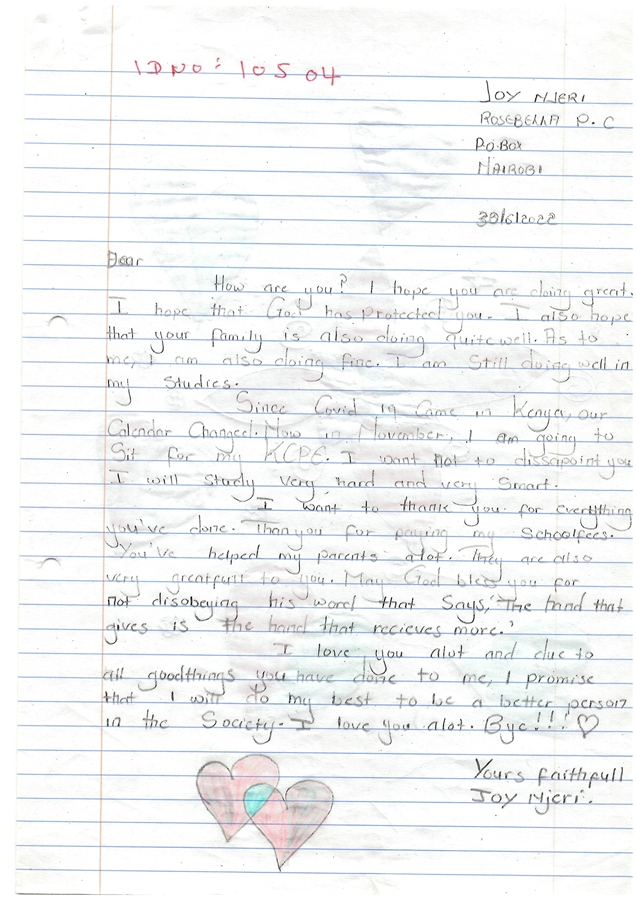 IDNO: 105 04
JOY NJERI
ROSEBELLA P.C
P.O.BOX
NAIROBI
30/6/2022
Dear
How are you? I hope you are doing great.
I hope that God has protected you. I also hope
that your family is also doing quite well. As to
me, I am also doing fine. I am still doing well in
my studies.
Since Covid 19 Came in Kenya, our
Calendar Changed. Now in November, I am going to
Sit for my KCPE. I want not to dissapoint you
I will study very hard and very smart.
I want to thank you for everything
you've done. Thanyou for paying my Schoolfees.
You've helped my parents alot. They are also
very greatfull to you. May God bless you for
not disobeying his word that says, 'The hand that
gives is the hand that recieves more.'
I love you alot and due to
all goodthings you have done to me, I promise
that I will do my best to be a better person
in the Society. I love you alot. Bye!!!
Yours faithfull
Joy Njeri.